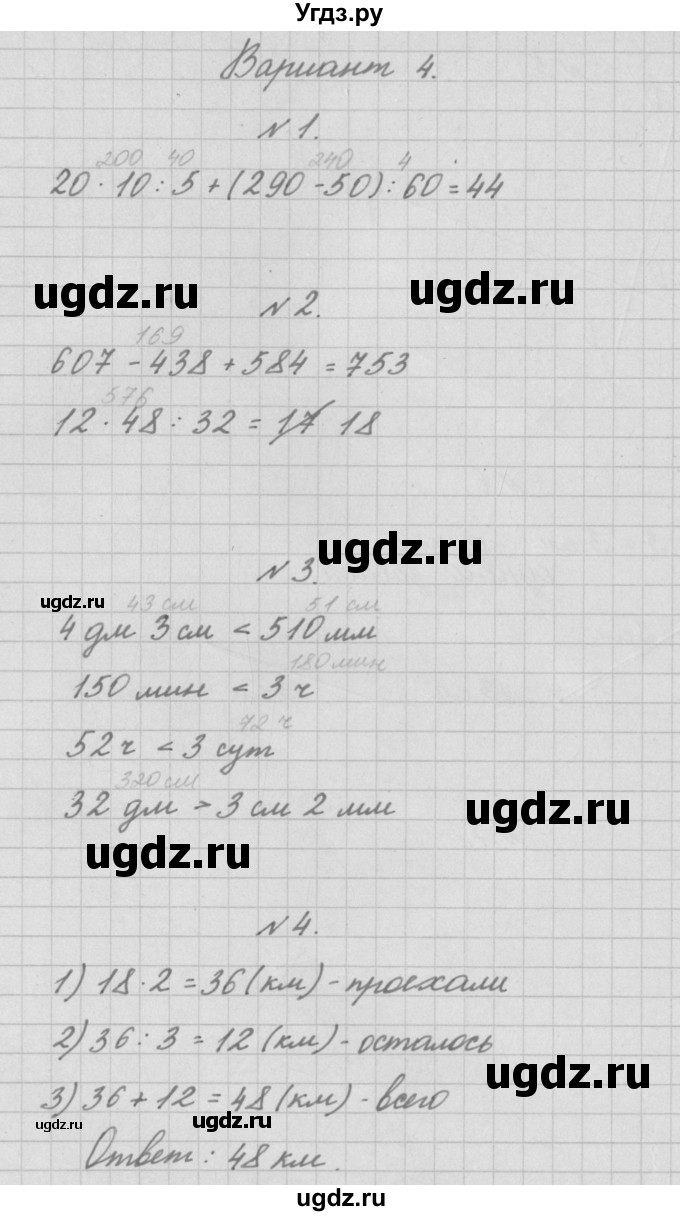 Угдз.ру
Вариант 4.
N 1.
200 40 240 4
20 · 10 : 5 + (290 - 50) : 60 = 44
ugdz.ru ugdz.ru
N 2.
169
607 - 438 + 584 = 753
576
12 · 48 : 32 = 17 18
ugdz.ru
N 3.
ugdz.ru 43 см 51 см
4 дм 3 см < 510 мм
180 мин
150 мин < 3 ч
72 ч
52 ч < 3 сут
320 см
32 дм > 3 см 2 мм
ugdz.ru
ugdz.ru
N 4.
1) 18 · 2 = 36 (км) - проехали
2) 36 : 3 = 12 (км) - осталось
ugdz.ru
3) 36 + 12 = 48 (км) - всего
ugdz.ru ugdz.ru
Ответ : 48 км.
ugdz.ru